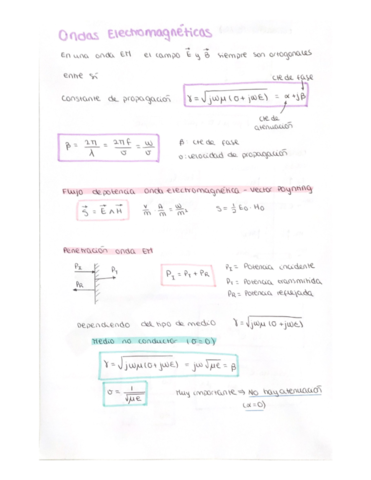 Ondas Electromagnéticas
En una onda EM el campo E⃗ y B⃗ siempre son ortogonales
entre sí
cte de fase
Constante de propagación γ = √jωμ(σ + jωε) = α + jβ
cte de
atenuación
β = 2π/λ = 2πf/v = ω/v
β cte de fase
v: velocidad de propagación
Flujo de potencia onda electromagnética - Vector Poynting
S⃗ = E⃗ ∧ H⃗ V/m A/m = W/m² S = 1/2 E₀ · H₀
Penetración onda EM
P_I P_t
P_R
P_I = P_t + P_R
P_I = Potencia incidente
P_t = Potencia transmitida
P_R = Potencia reflejada
Dependiendo del tipo de medio γ = √jωμ(σ + jωε)
Medio no conductor (σ=0)
γ = √jωμ(σ + jωε) = jω√με = β
v = 1/√με
Muy importante ⇒ No hay atenuación
(α=0)